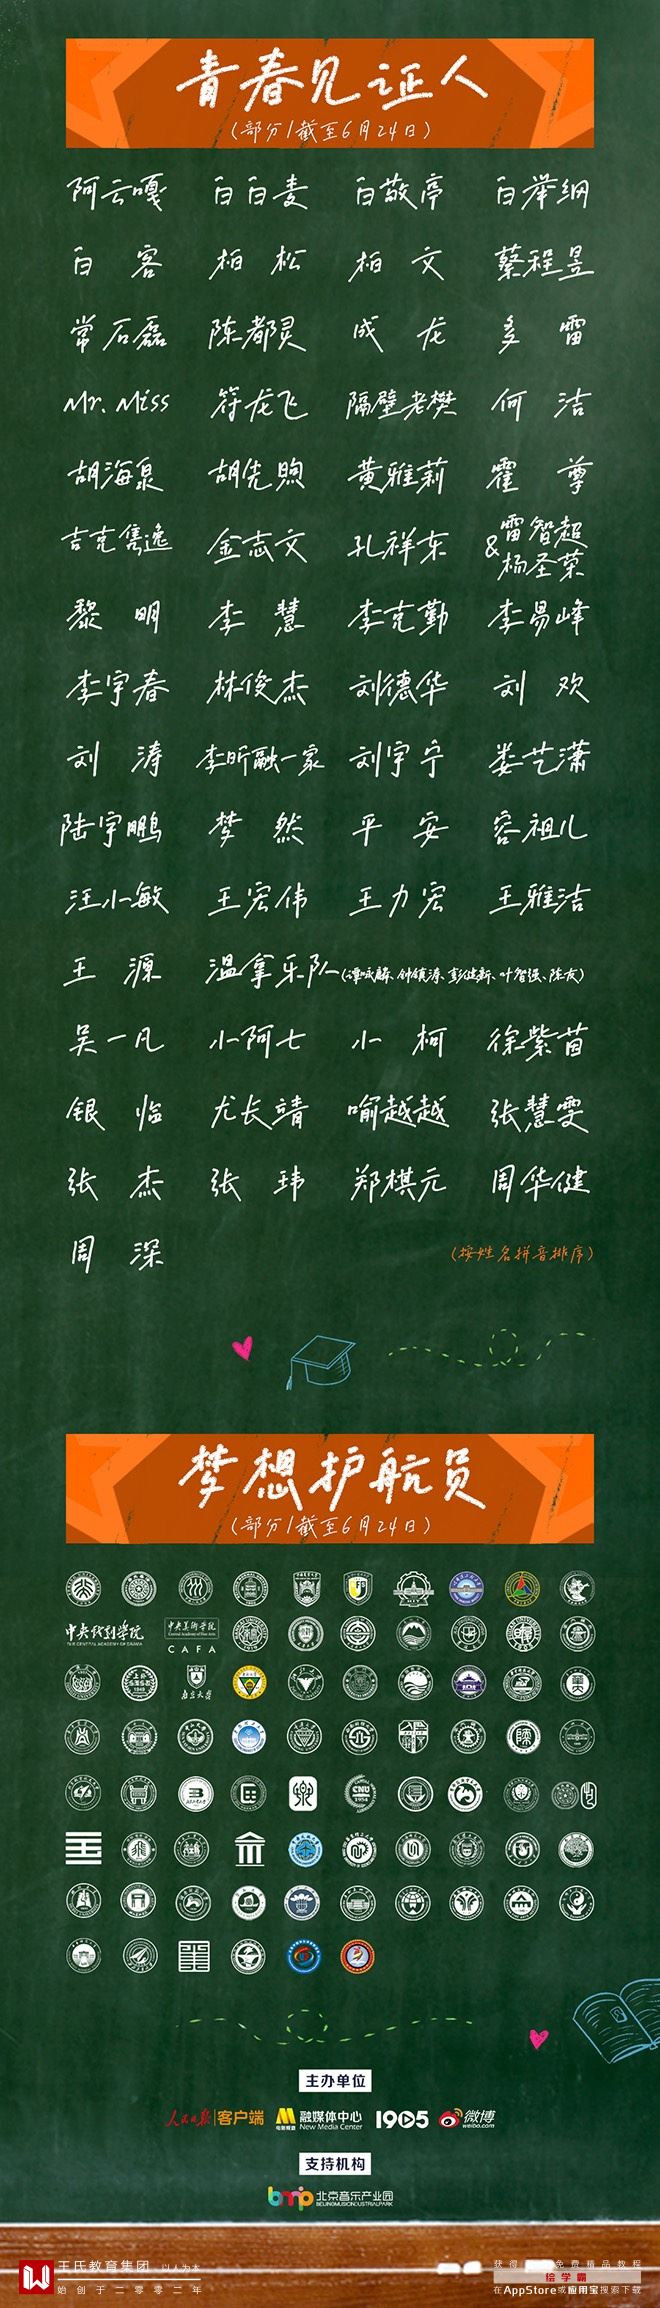 青春见证人
(部分/截至6月24日)
阿云嘎 白白麦 白敬亭 白举纲
白客 柏松 柏文 蔡程昱
常石磊 陈都灵 成龙 多雷
Mr. Miss 符龙飞 隔壁老樊 何洁
胡海泉 胡先煦 黄雅莉 霍尊
吉克隽逸 金志文 孔祥东 雷智超&杨圣荣
黎明 李慧 李克勤 李易峰
李宇春 林俊杰 刘德华 刘欢
刘涛 李昕融一家 刘宇宁 娄艺潇
陆宇鹏 梦然 平安 容祖儿
汪小敏 王宏伟 王力宏 王雅洁
王源 温拿乐队(谭咏麟、钟镇涛、彭健新、叶智强、陈友)
吴一凡 小阿七 小柯 徐紫茵
银临 尤长靖 喻越越 张慧雯
张杰 张玮 郑棋元 周华健
周深
(按姓名拼音排序)
梦想护航员
(部分/截至6月24日)
中央戏剧学院
THE CENTRAL ACADEMY OF DRAMA
中央美术学院
Central Academy of Fine Arts
CAFA
南京大学
CNU
1954
主办单位
人民日报|客户端 电影频道 融媒体中心 New Media Center 1905 微博 weibo.com
支持机构
bmip 北京音乐产业园
BEIJINGMUSICINDUSTRIALPARK
王氏教育集团 以人为本
始创于二零零二年
获得 免费精品教程
绘学霸
在AppStore或应用宝搜索下载